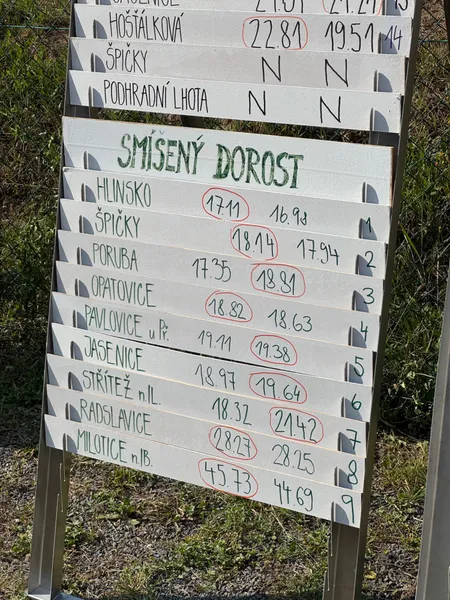 HOŠŤÁLKOVÁ 22.81 19.51 14
ŠPIČKY N N
PODHRADNÍ LHOTA N N
SMÍŠENÝ DOROST
HLINSKO 17.11 16.98 1
ŠPIČKY 18.14 17.94 2
PORUBA 17.35 18.81 3
OPATOVICE 18.82 18.63 4
PAVLOVICE u Př. 19.11 19.38 5
JASENICE 18.97 19.64 6
STŘÍTEŽ n.L. 18.32 21.42 7
RADSLAVICE 28.27 28.25 8
MILOTICE n.B. 45.73 44.69 9